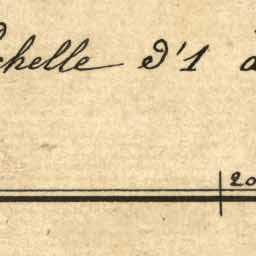 chelle d'1 à
20